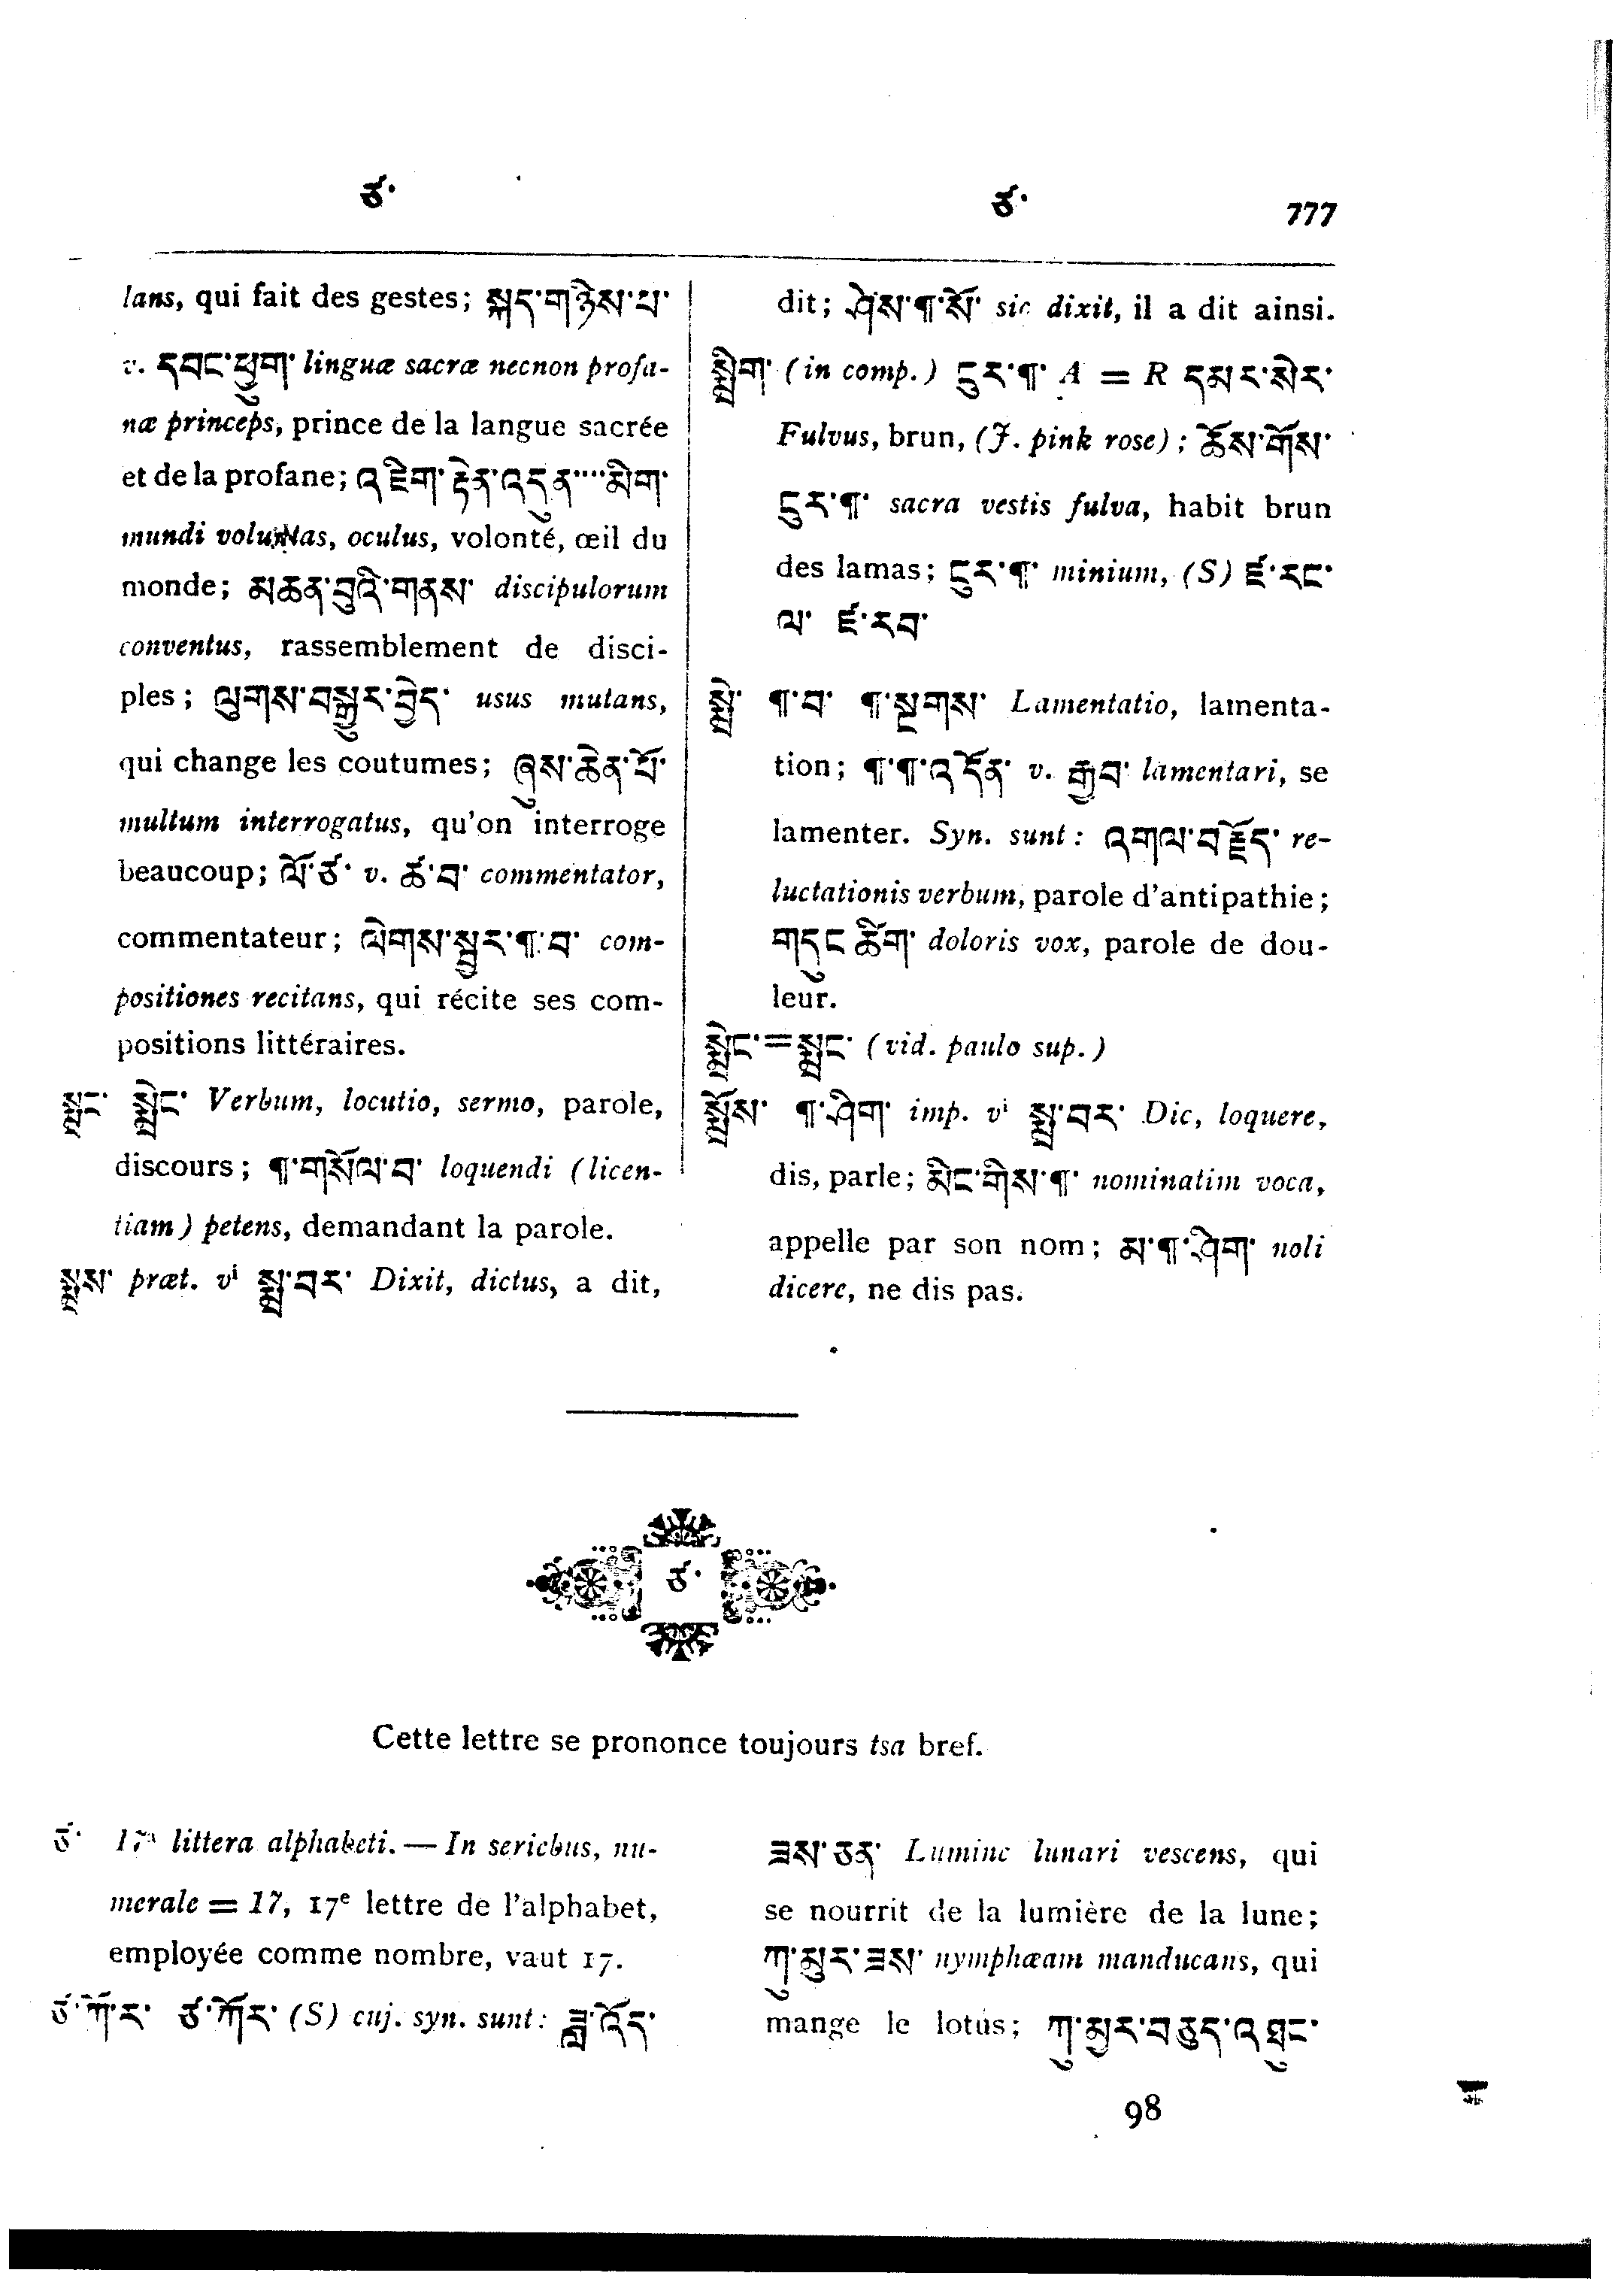 ཙ་
ཙ་ 777
lans, qui fait des gestes; སྐད་གཉིས་པ་
v. དབང་ཕྱུག་ linguæ sacræ necnon profa-
næ princeps, prince de la langue sacrée
et de la profane; འཇིག་རྟེན་འདུན་་་་མིག་
mundi voluntas, oculus, volonté, œil du
monde; མཆན་བུའི་གནས་ discipulorum
conventus, rassemblement de disci-
ples; ལུགས་བསྒྱུར་བྱེད་ usus mutans,
qui change les coutumes; ཞུས་ཆེན་པོ་
multum interrogatus, qu'on interroge
beaucoup; ལོ་ཙ་ v. ཙཱ་བ་ commentator,
commentateur; ལེགས་སྦྱར་¶་བ་ com-
positiones recitans, qui récite ses com-
positions littéraires.
སྨྲང་ སྨྲེང་ Verbum, locutio, sermo, parole,
discours; ¶་གསོལ་བ་ loquendi (licen-
tiam) petens, demandant la parole.
སྨྲས་ præt. vⁱ སྨྲ་བར་ Dixit, dictus, a dit,
dit; ཤེས་¶་སོ་ sic dixit, il a dit ainsi.
སྨྲིག་ (in comp.) ངུར་¶་ A = R དམར་སེར་
Fulvus, brun, (J. pink rose); ཆོས་གོས་
ངུར་¶་ sacra vestis fulva, habit brun
des lamas; ངུར་¶་ minium, (S) ཛ་རང་
ལ་ ཛ་རབ་
སྨྲེ་ ¶་བ་ ¶་སྔགས་ Lamentatio, lamenta-
tion; ¶་¶་འདོན་ v. རྒྱབ་ lamentari, se
lamenter. Syn. sunt: འགལ་བརྗོད་ re-
luctationis verbum, parole d'antipathie;
གདུང་ཚིག་ doloris vox, parole de dou-
leur.
སྨྲེང་=སྨྲང་ (vid. paulo sup.)
སྨྲོས་ ¶་ཤིག་ imp. vⁱ སྨྲ་བར་ Dic, loquere,
dis, parle; མིང་གིས་¶་ nominatim voca,
appelle par son nom; མ་¶་ཤིག་ noli
dicere, ne dis pas.
ཙ་
Cette lettre se prononce toujours tsa bref.
ཙ་ 17ᵃ littera alphabeti. — In seriebus, nu-
merale = 17, 17ᵉ lettre de l'alphabet,
employée comme nombre, vaut 17.
ཙ་ཀོ་ར་ ཙ་ཀོར་ (S) cuj. syn. sunt: ཟླ་འོད་
ཟས་ཅན་ Lumine lunari vescens, qui
se nourrit de la lumière de la lune;
ཀུ་མུར་ཟས་ nymphæam manducans, qui
mange le lotus; ཀུ་མྱར་བཅུད་འཐུང་
98